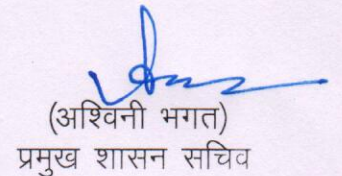 (अश्विनी भगत)
प्रमुख शासन सचिव